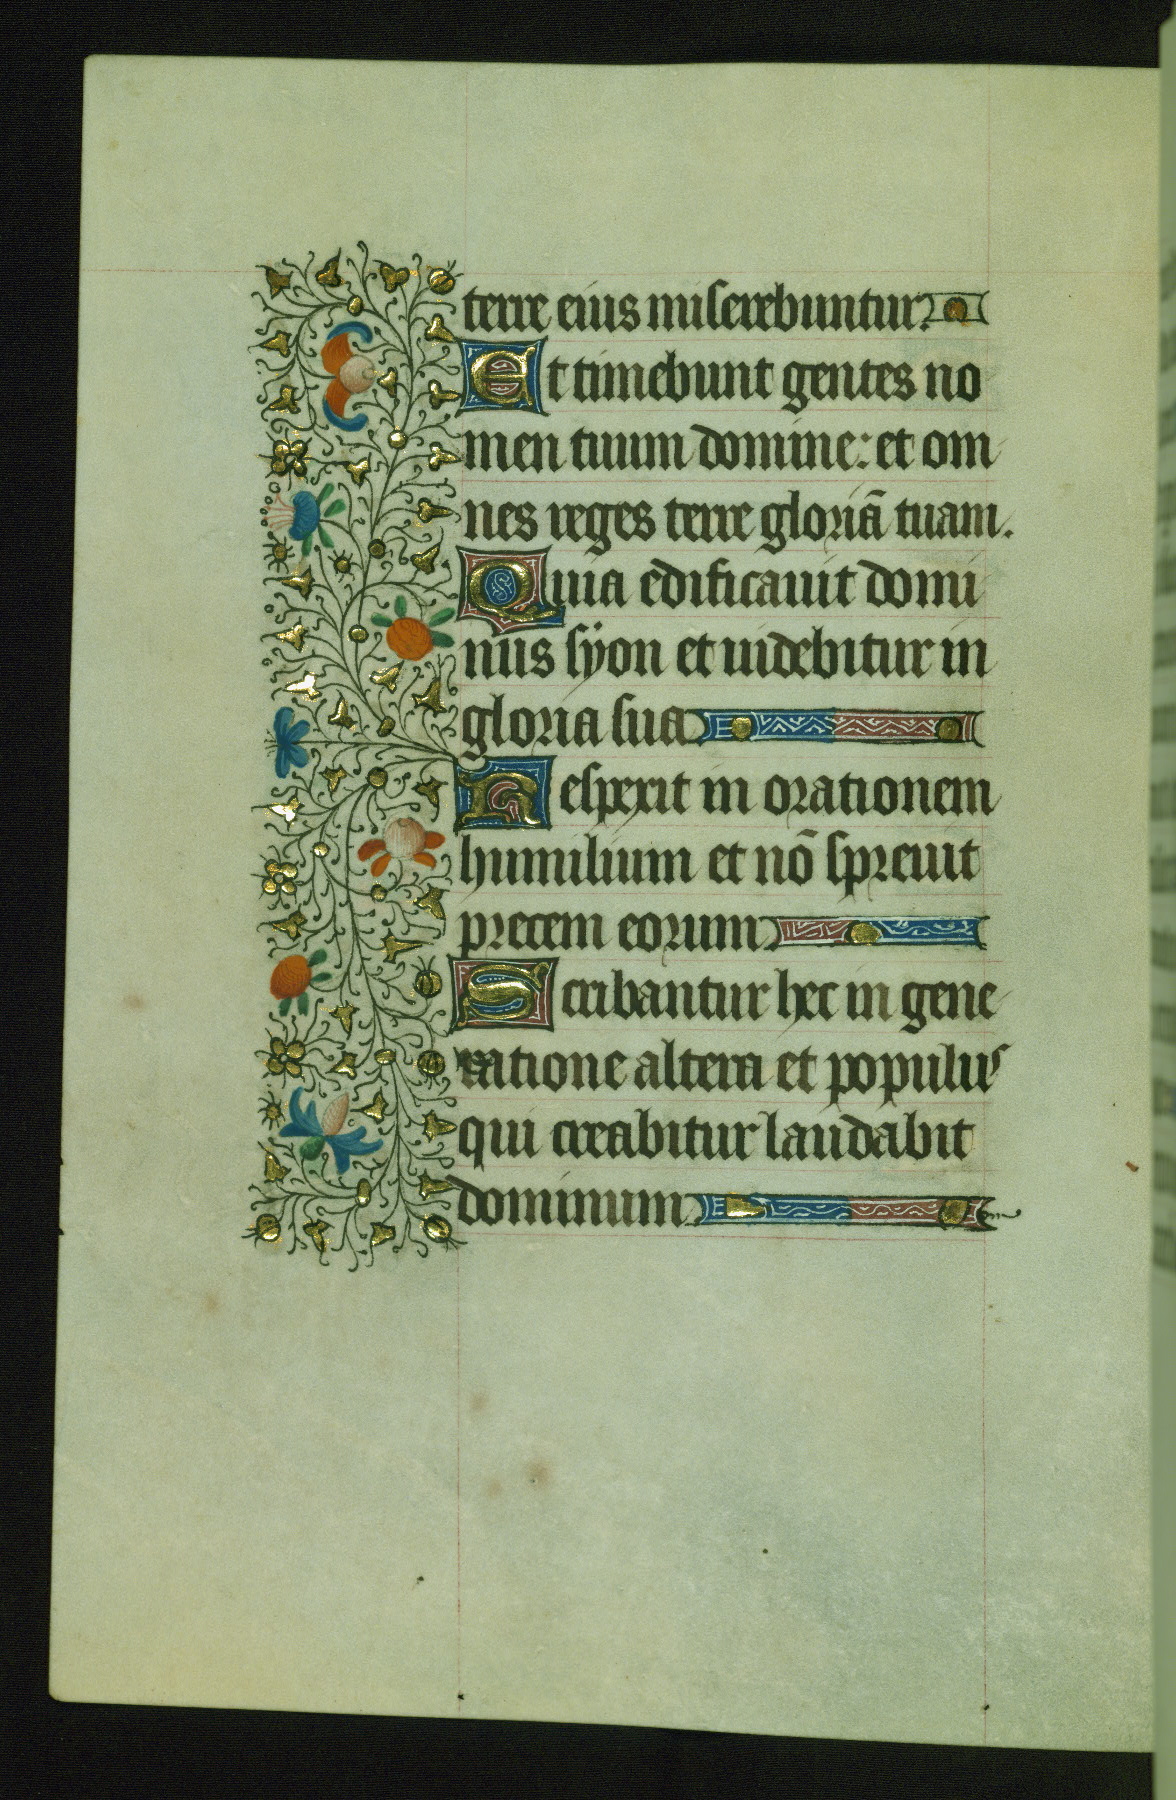 terre eius miserebuntur.
Et timebunt gentes no
men tuum domine: et om
nes reges terre gloriā tuam.
Quia edificauit domi
nus sÿon et uidebitur in
gloria sua
Respexit in orationem
humilium et nō spreuit
precem eorum
Scribantur hec in gene
ratione altera et populus
qui creabitur laudabit
dominum